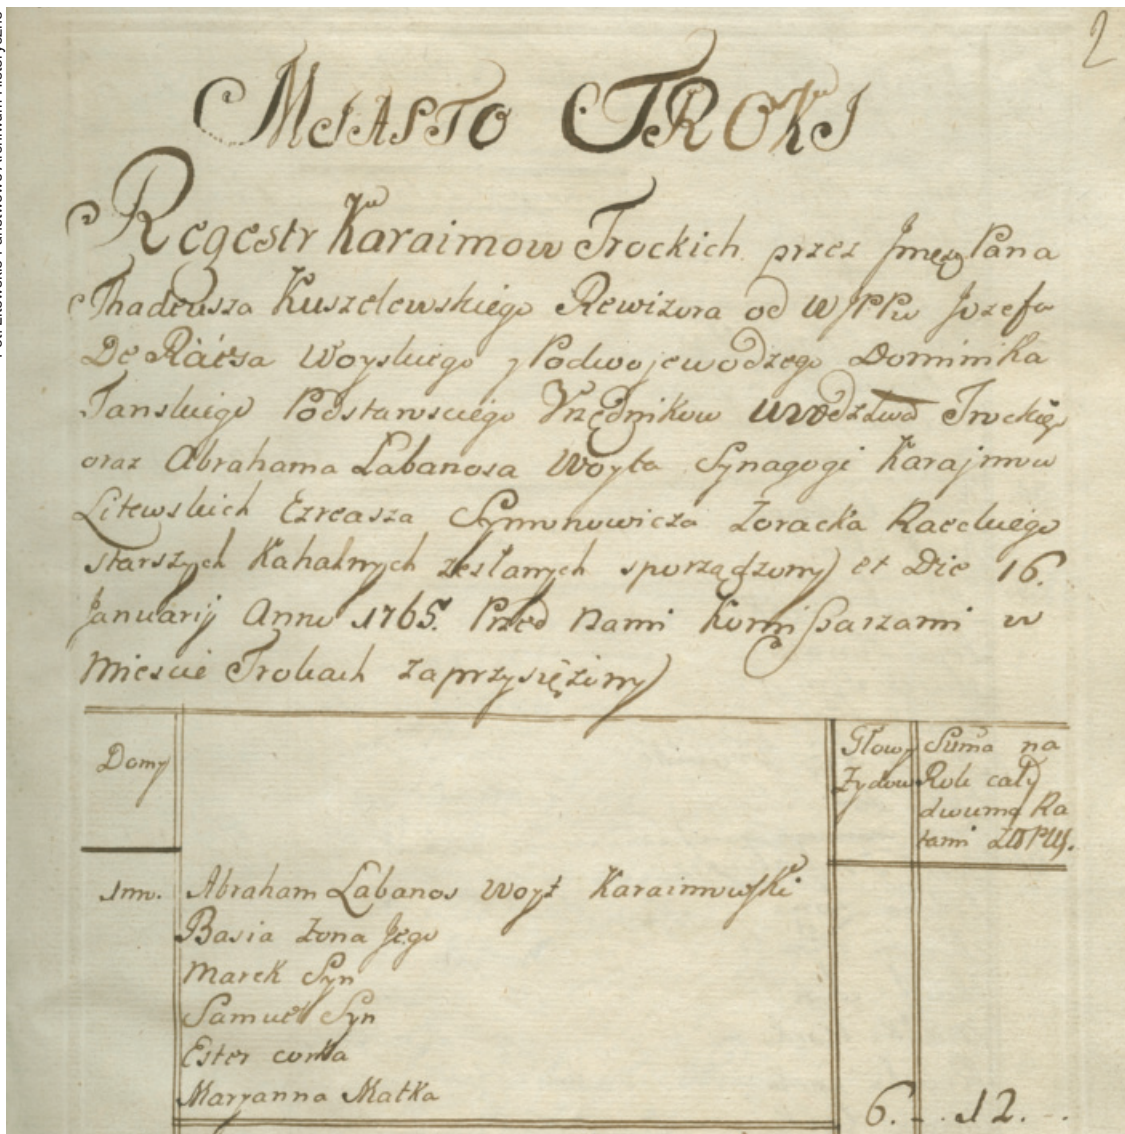 2
MIASTO TROKI
Regestr Karaimow Trockich przez Jmcą Pana
Thadeusza Kuszelewskiego Rewizora od WJPPu Jozefa
De Raesa Woyskiego y Podwojewodzego Dominika
Tanskiego Podstarosciego Vrzędnikow Trockig
oraz Abrahama Labanosa Woyta Synagogi Karajmow
Litewskich Ezreasza Symonowicza Zoracka
starszych Kahalnych zesłanych sporządzony et Die 16.
Januarij Anno 1765. Przed Nami Kommissarzami w
Miescie Trokach zaprzysiężony
Domy
Głowy Żydow
Suma na Rok cały dwuma Ratami
1mo. Abraham Labanos Woyt Karaimowski
Basia Żona Jego
Marek Syn
Samuel Syn
Ester corka
Maryanna Matka
6. - . 12. - .